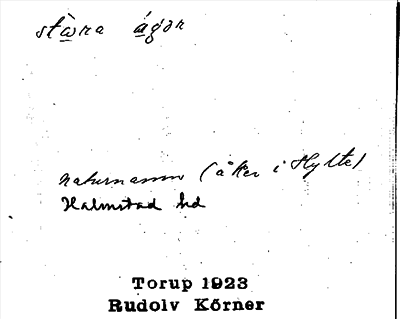 stὼ̲ra á̲gər
naturnamn (åker i Hylte)
Halmstad hd
Torup 1923
Rudolv Körner